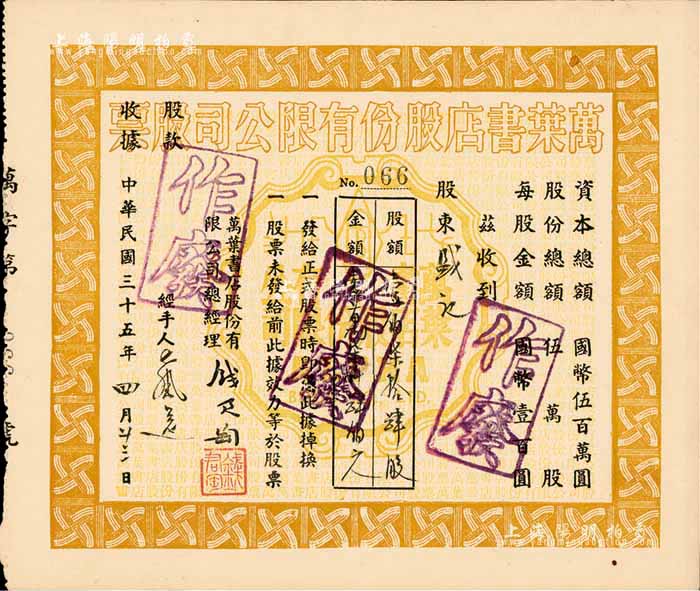 萬葉書店股份有限公司股票
No. 066
資本總額 國幣伍百萬圓
股份總額 伍萬股
每股金額 國幣壹百圓
茲收到
股東 盛記
股額 拾肆股
金額
一 發給正式股票時即憑此據掉換
一 股票未發給前此據效力等於股票
萬葉書店股份有
限公司總經理 錢君匋
經手人
股款
收據
中華民國三十五年 四月廿二日
作廢
作廢
作廢
萬字第 號
上海陽明拍賣
上海陽明拍賣